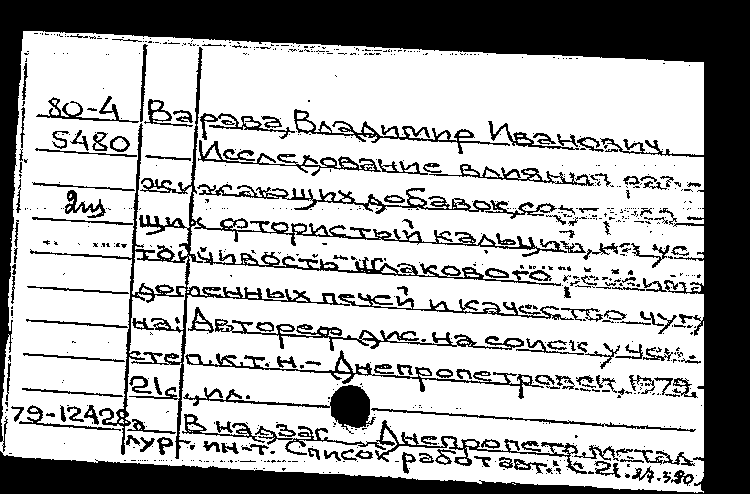 80-4 Варава, Владимир Иванович.
5480 Исследование влияния раз-
жижающих добавок,
2ш щих фтористый кальций, на ус-
тойчивость шлакового режима
доменных печей и качество чугу
на: Автореф. дис. на соиск. учен.
степ. к.т.н.- Днепропетровск, 1979.-
21с., ил.
79-12428а В надзаг. Днепропетр. метал-
лург. ин-т. Список работ авт.: с. 21.